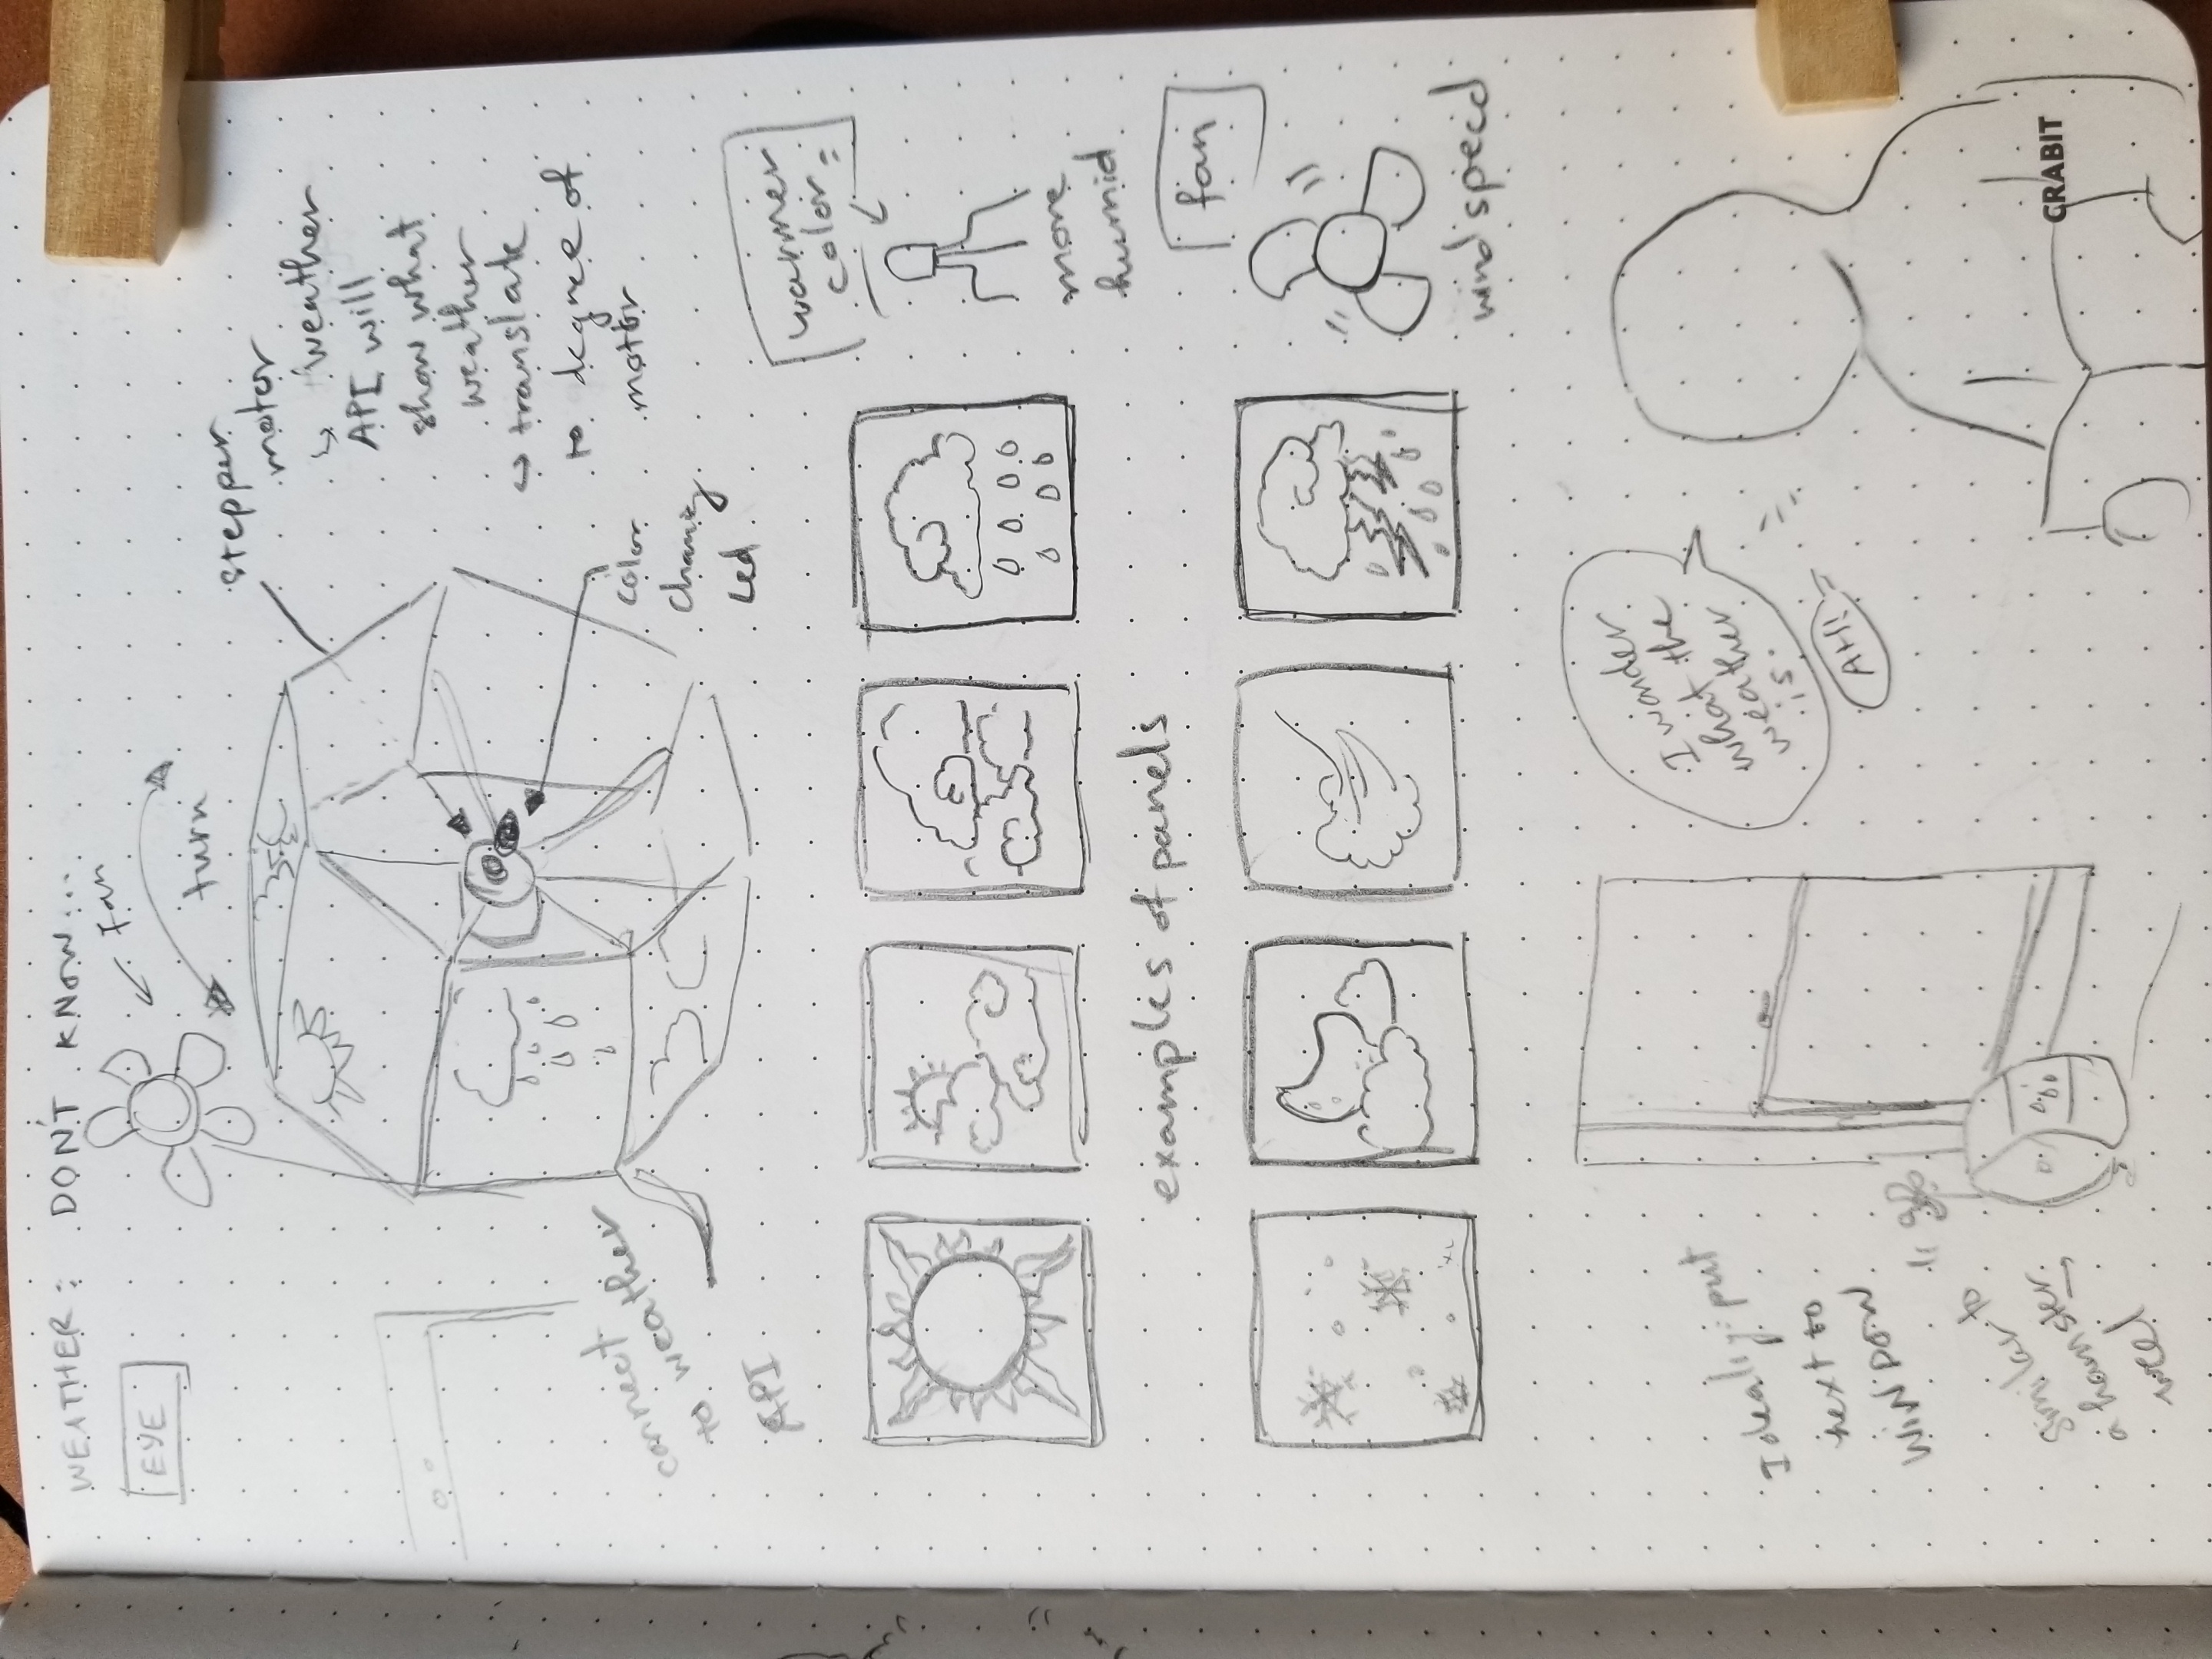 WEATHER: DON'T KNOW...
EYE
Fan
turn
stepper
motor
↳ weather
API will
show what
weather
↪ translate
to degree of
motor
connect
to weather
API
color
Led
warmer
color =
more
humid
examples of panels
fan
wind speed
Ideally: put
next to
WINDOW
similar to
a hamster
weel
I wonder
what the
weather
is.
AH!
CRABIT